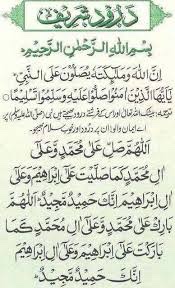 درود شریف
بِسْمِ اللهِ الرَّحْمٰنِ الرَّحِيْمِ
اِنَّ اللهَ وَمَلٰٓئِكَتَهٗ يُصَلُّوْنَ عَلَى النَّبِيِّ
يٰۤاَيُّهَا الَّذِيْنَ اٰمَنُوْا صَلُّوْا عَلَيْهِ وَسَلِّمُوْا تَسْلِيْمًا
اے ایمان والو! ان پر درود اور خوب سلام بھیجو
اَللّٰهُمَّ صَلِّ عَلٰى مُحَمَّدٍ وَّعَلٰۤى
اٰلِ مُحَمَّدٍ كَمَا صَلَّيْتَ عَلٰۤى اِبْرَاهِيْمَ وَعَلٰۤى
اٰلِ اِبْرَاهِيْمَ اِنَّكَ حَمِيْدٌ مَّجِيْدٌ اَللّٰهُمَّ
بَارِكْ عَلٰى مُحَمَّدٍ وَّعَلٰۤى اٰلِ مُحَمَّدٍ كَمَا
بَارَكْتَ عَلٰۤى اِبْرَاهِيْمَ وَعَلٰۤى اٰلِ اِبْرَاهِيْمَ
اِنَّكَ حَمِيْدٌ مَّجِيْدٌ